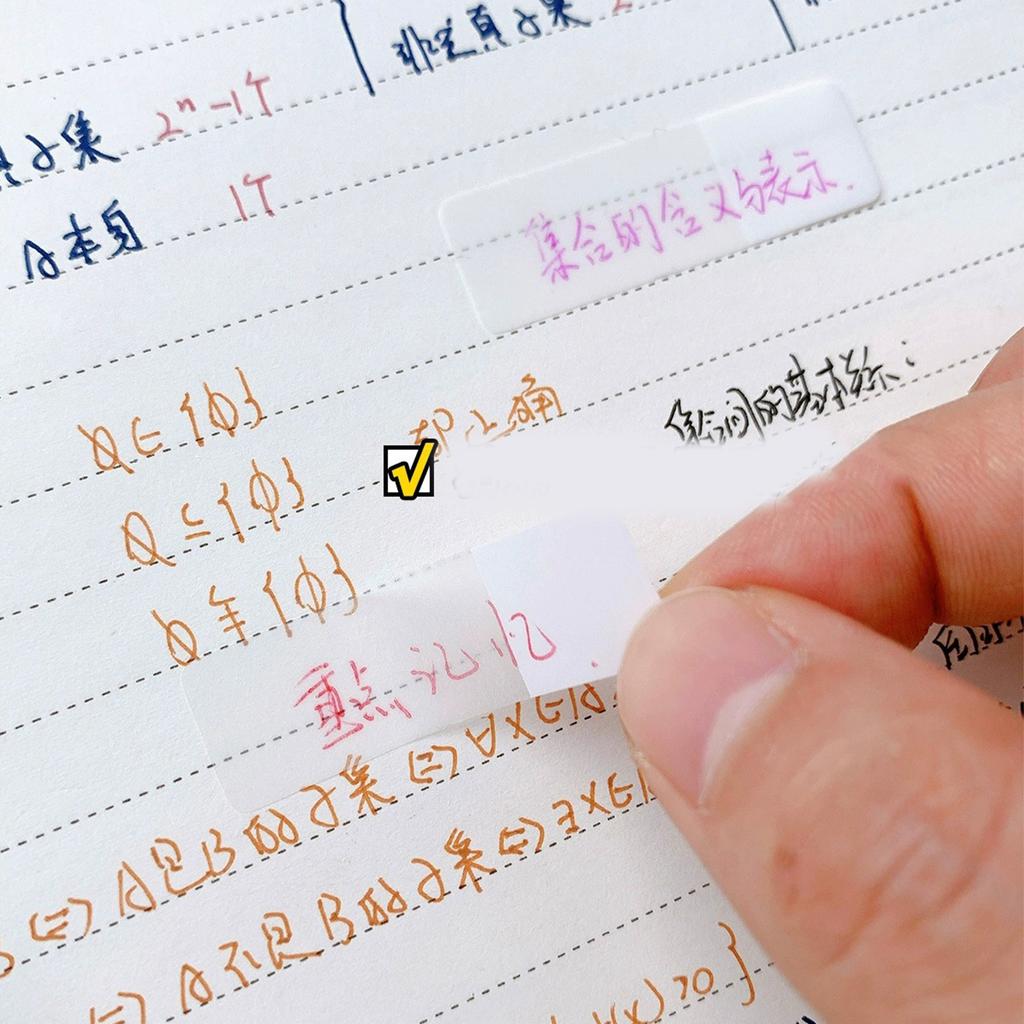 非空真子集 2
真子集 2ⁿ-1个
A本身 1个
集合的含义与表示.
∅∈{∅}
都正确
集合间的基本关系:
∅⊆{∅}
∅⫋{∅}
重点记忆.
⇔A是B的子集⇔∀X∈A
⇔A不是B的子集⇔∃X∈A
(x)>0}